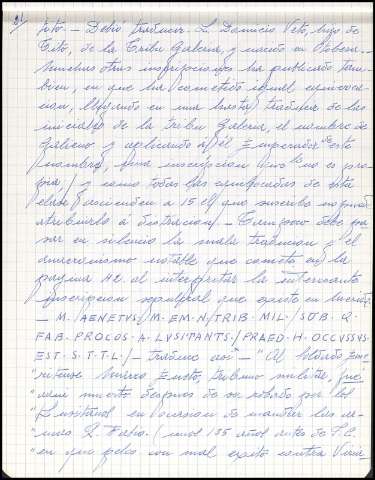 Fito — Debió traducir L. Domicio Vito, hijo de
Tito, de la tribu Galeria, y nacido en
muchas otras inscripciones ha publicado tam-
bien, en que ha cometido igual equivoca-
cion, llegando en una hasta traducir de las
iniciales de la tribu Galeria, el nombre de
Galieno y aplicando a el Emperador de este
nombre, una inscripcion que no es pro-
pia, y como todas las equivocadas de esta
clase ascienden a 15 el que suscribe no puede
atribuirlo á distraccion. — Tampoco debe pa-
sar en silencio la mala traduccion y el
anacronismo notable que comete en la
pagina 42 al interpretar la interesante
inscripcion sepulcral que existe en
— M. AENETVS / M. EM. N / TRIB. MIL. / SVB. Q.
FAB. PROCOS. A. LVSITANTS. / PRAED. H. OCCVSSVS
EST. S. T. T. L. / — traduce asi — "Al Soldado Eme-
"ritense Marco Eneto, tribuno militar, que
"tiene muerto despues de ser robado por los
"Lusitanos en ocasion de mandar las ar-
"mas Q. Fabio. (unos 135 años antes de J.C.
"en que peleo con mal exito contra Viria-